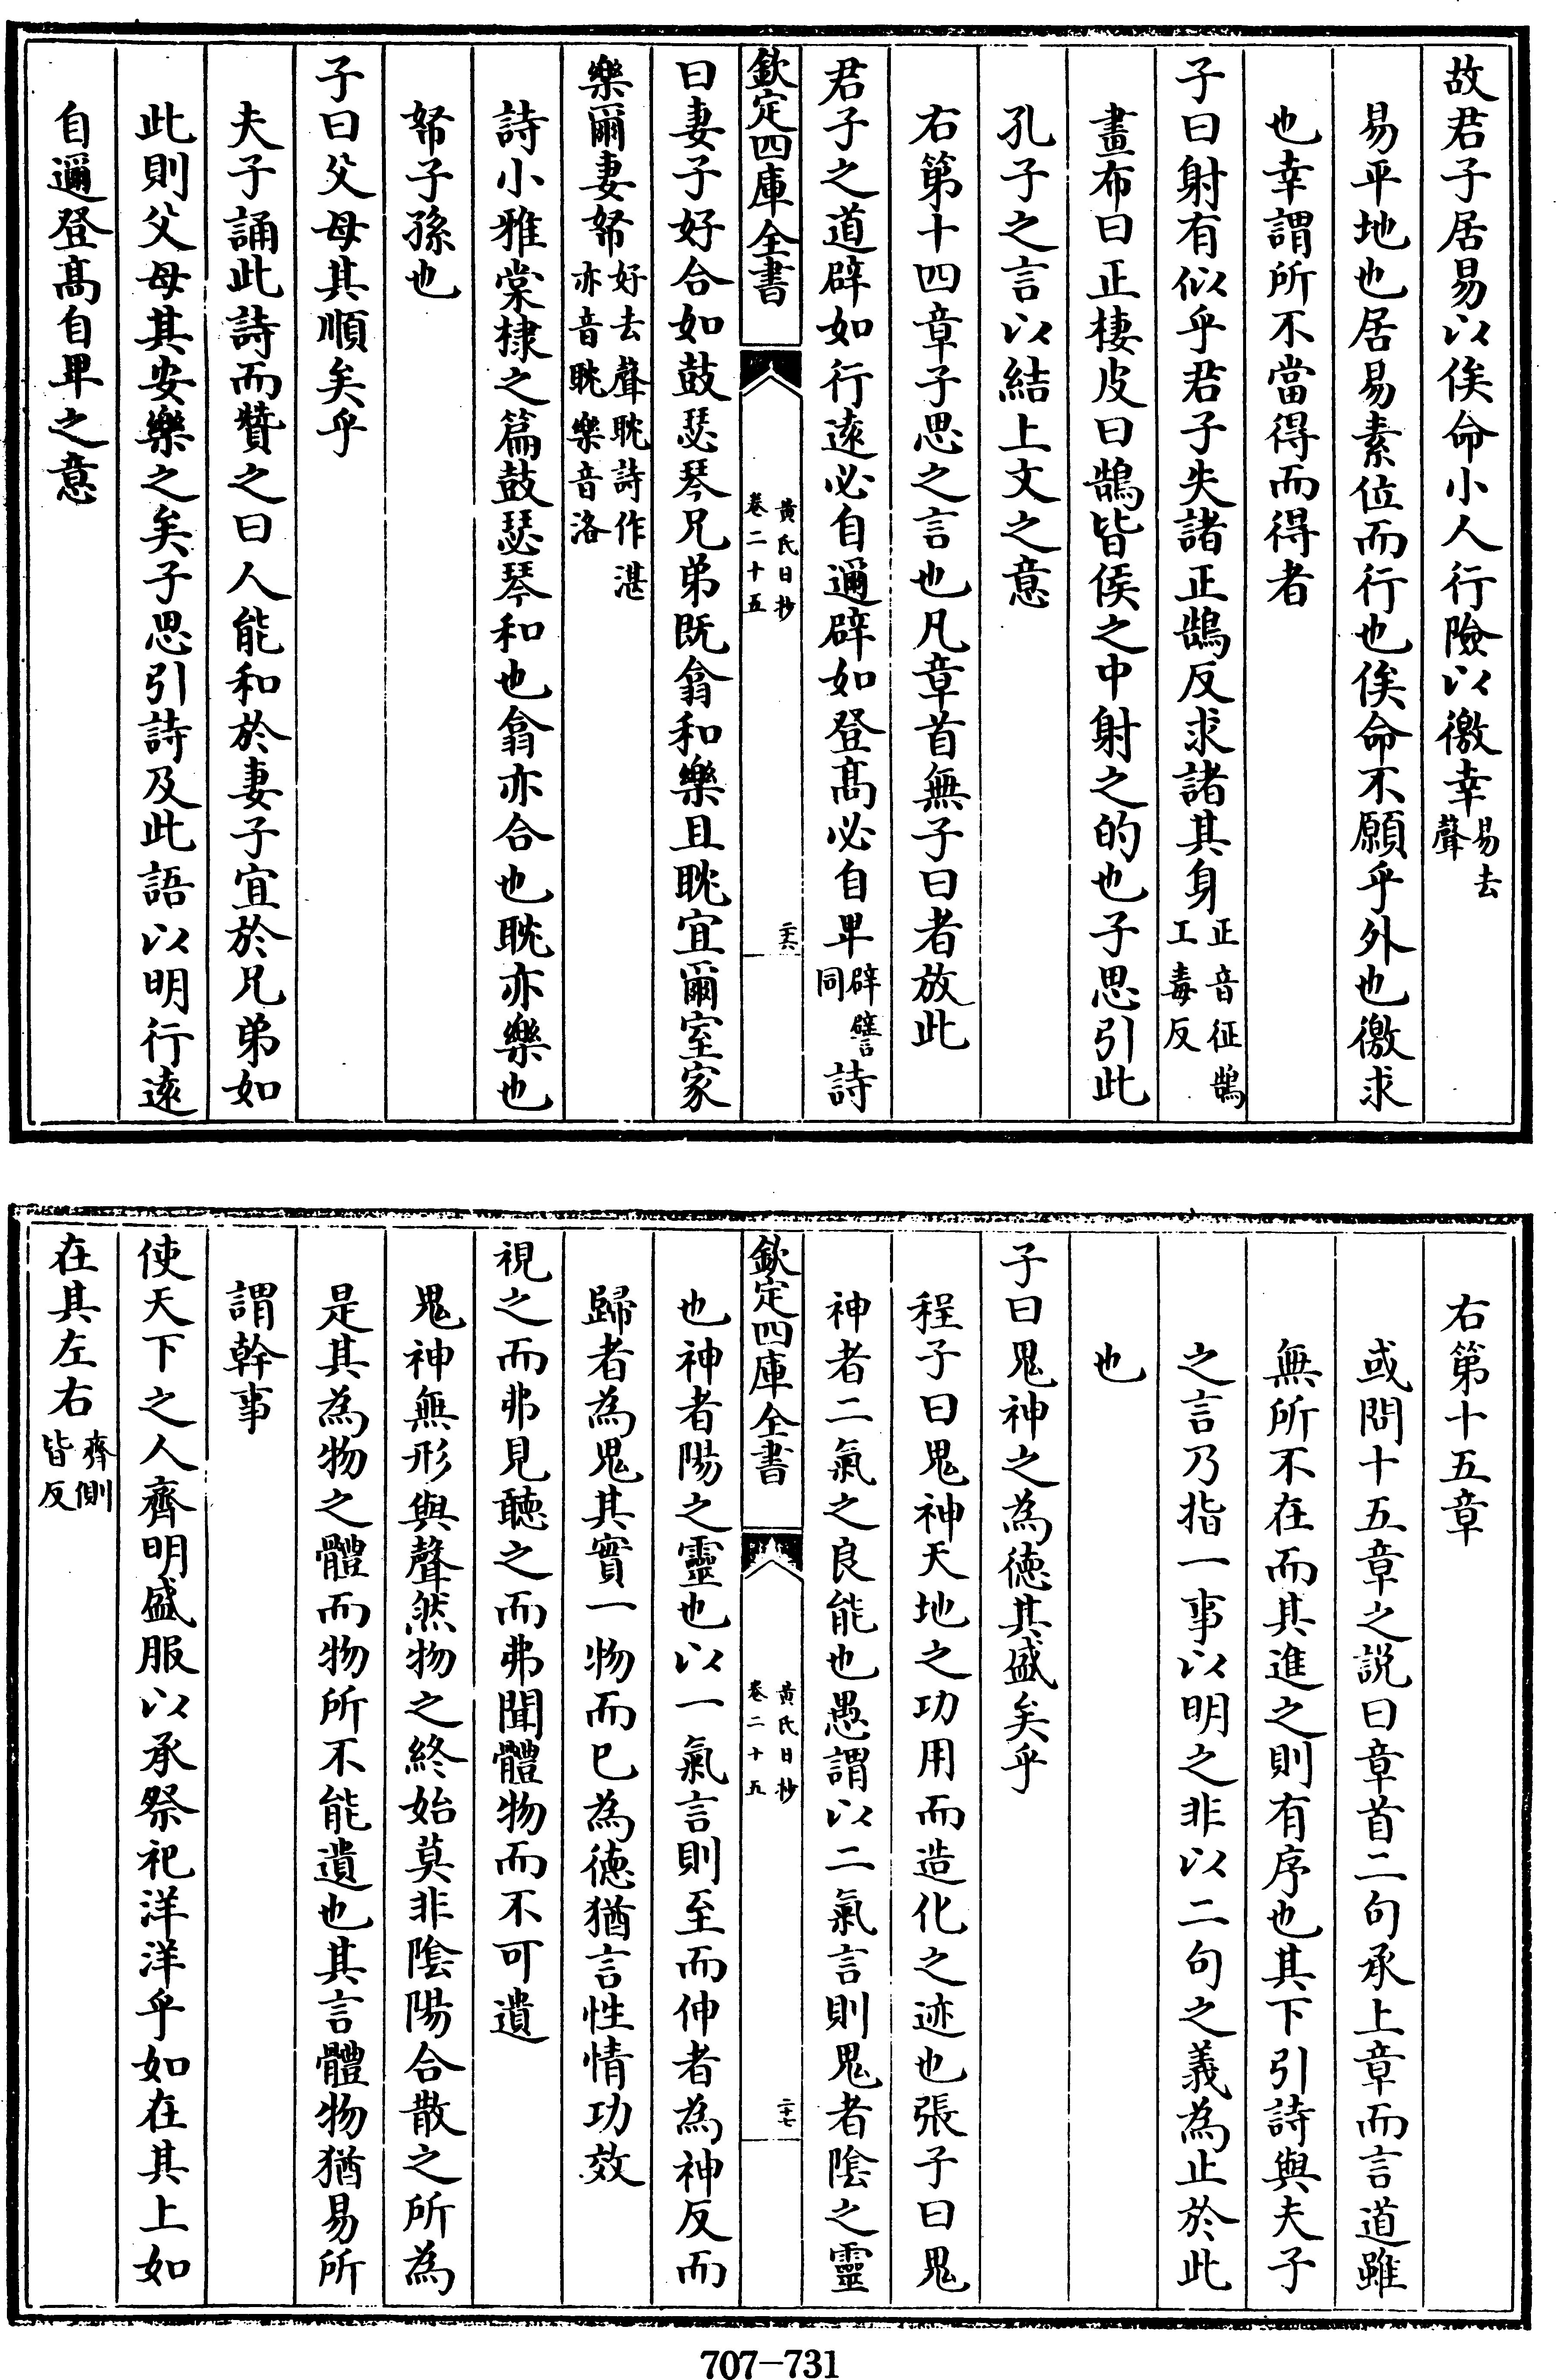 故君子居易以俟命小人行險以徼幸易去聲
易平地也居易素位而行也俟命不願乎外也徼求
也幸謂所不當得而得者
子曰射有似乎君子失諸正鵠反求諸其身正音征鵠工毒反
畫布曰正棲皮曰鵠皆侯之中射之的也子思引此
孔子之言以結上文之意
右第十四章子思之言也凡章首無子曰者放此
君子之道辟如行遠必自邇辟如登髙必自卑辟譬同詩
欽定四庫全書
黄氏日抄
卷二十五
二六
曰妻子好合如鼓瑟琴兄弟既翕和樂且耽宜爾室家
樂爾妻帑好去聲耽詩作湛亦音耽樂音洛
詩小雅棠棣之篇鼓瑟琴和也翕亦合也耽亦樂也
帑子孫也
子曰父母其順矣乎
夫子誦此詩而贊之曰人能和於妻子宜於兄弟如
此則父母其安樂之矣子思引詩及此語以明行遠
自邇登髙自卑之意
右第十五章
或問十五章之説曰章首二句承上章而言道雖
無所不在而其進之則有序也其下引詩與夫子
之言乃指一事以明之非以二句之義為止於此
也
子曰鬼神之為德其盛矣乎
程子曰鬼神天地之功用而造化之迹也張子曰鬼
神者二氣之良能也愚謂以二氣言則鬼者陰之靈
欽定四庫全書
黄氏日抄
卷二十五
二十七
也神者陽之靈也以一氣言則至而伸者為神反而
歸者為鬼其實一物而已為德猶言性情功效
視之而弗見聽之而弗聞體物而不可遺
鬼神無形與聲然物之終始莫非陰陽合散之所為
是其為物之體而物所不能遺也其言體物猶易所
謂幹事
使天下之人齊明盛服以承祭祀洋洋乎如在其上如
在其左右齊側皆反
707-731